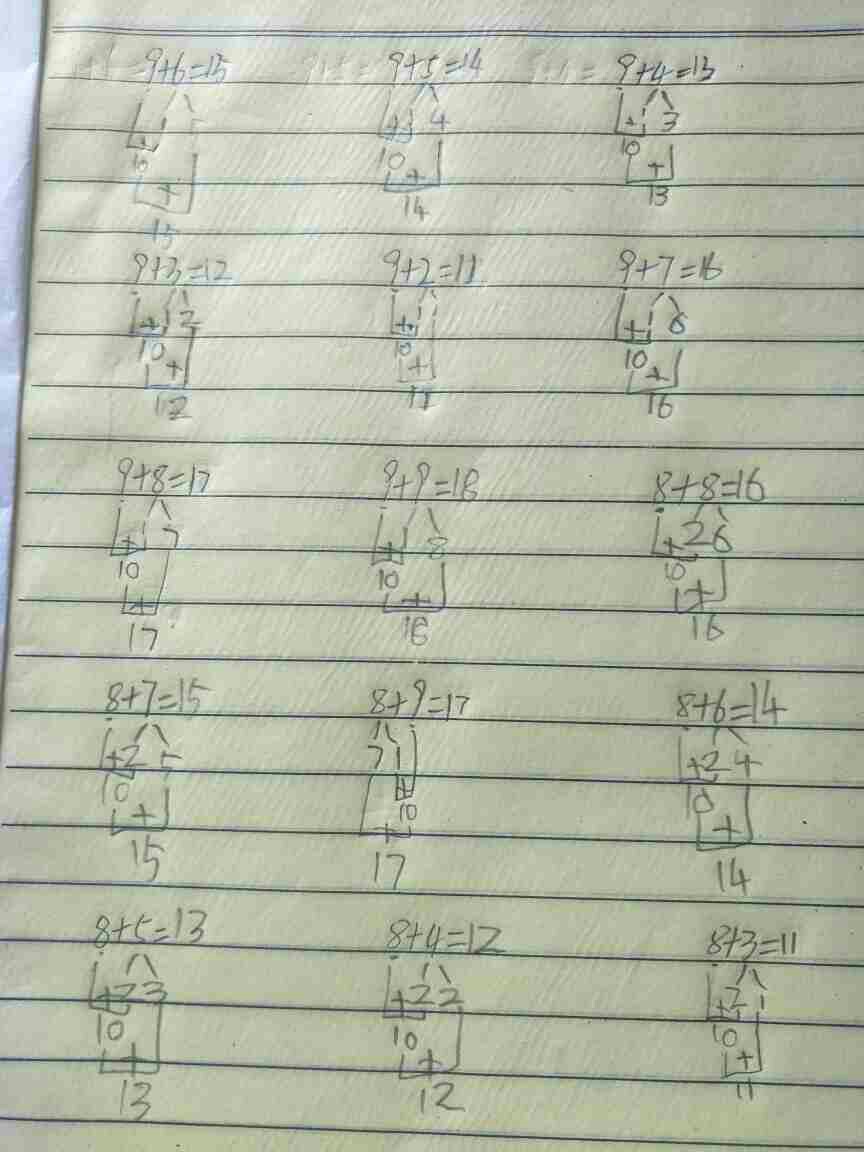 9+6=15 9+5=14 9+4=13
+ 1 5 + 1 4 + 1 3
10 10 10
+ + +
15 14 13
9+3=12 9+2=11 9+7=16
+ 1 2 + 1 1 + 1 6
10 10 10
+ + +
12 11 16
9+8=17 9+9=18 8+8=16
+ 1 7 + 1 8 + 2 6
10 10 10
+ + +
17 18 16
8+7=15 8+9=17 8+6=14
+ 2 5 7 1 + 2 4
10 + 10 10
+ + +
15 17 14
8+5=13 8+4=12 8+3=11
+ 2 3 + 2 2 + 2 1
10 10 10
+ + +
13 12 11